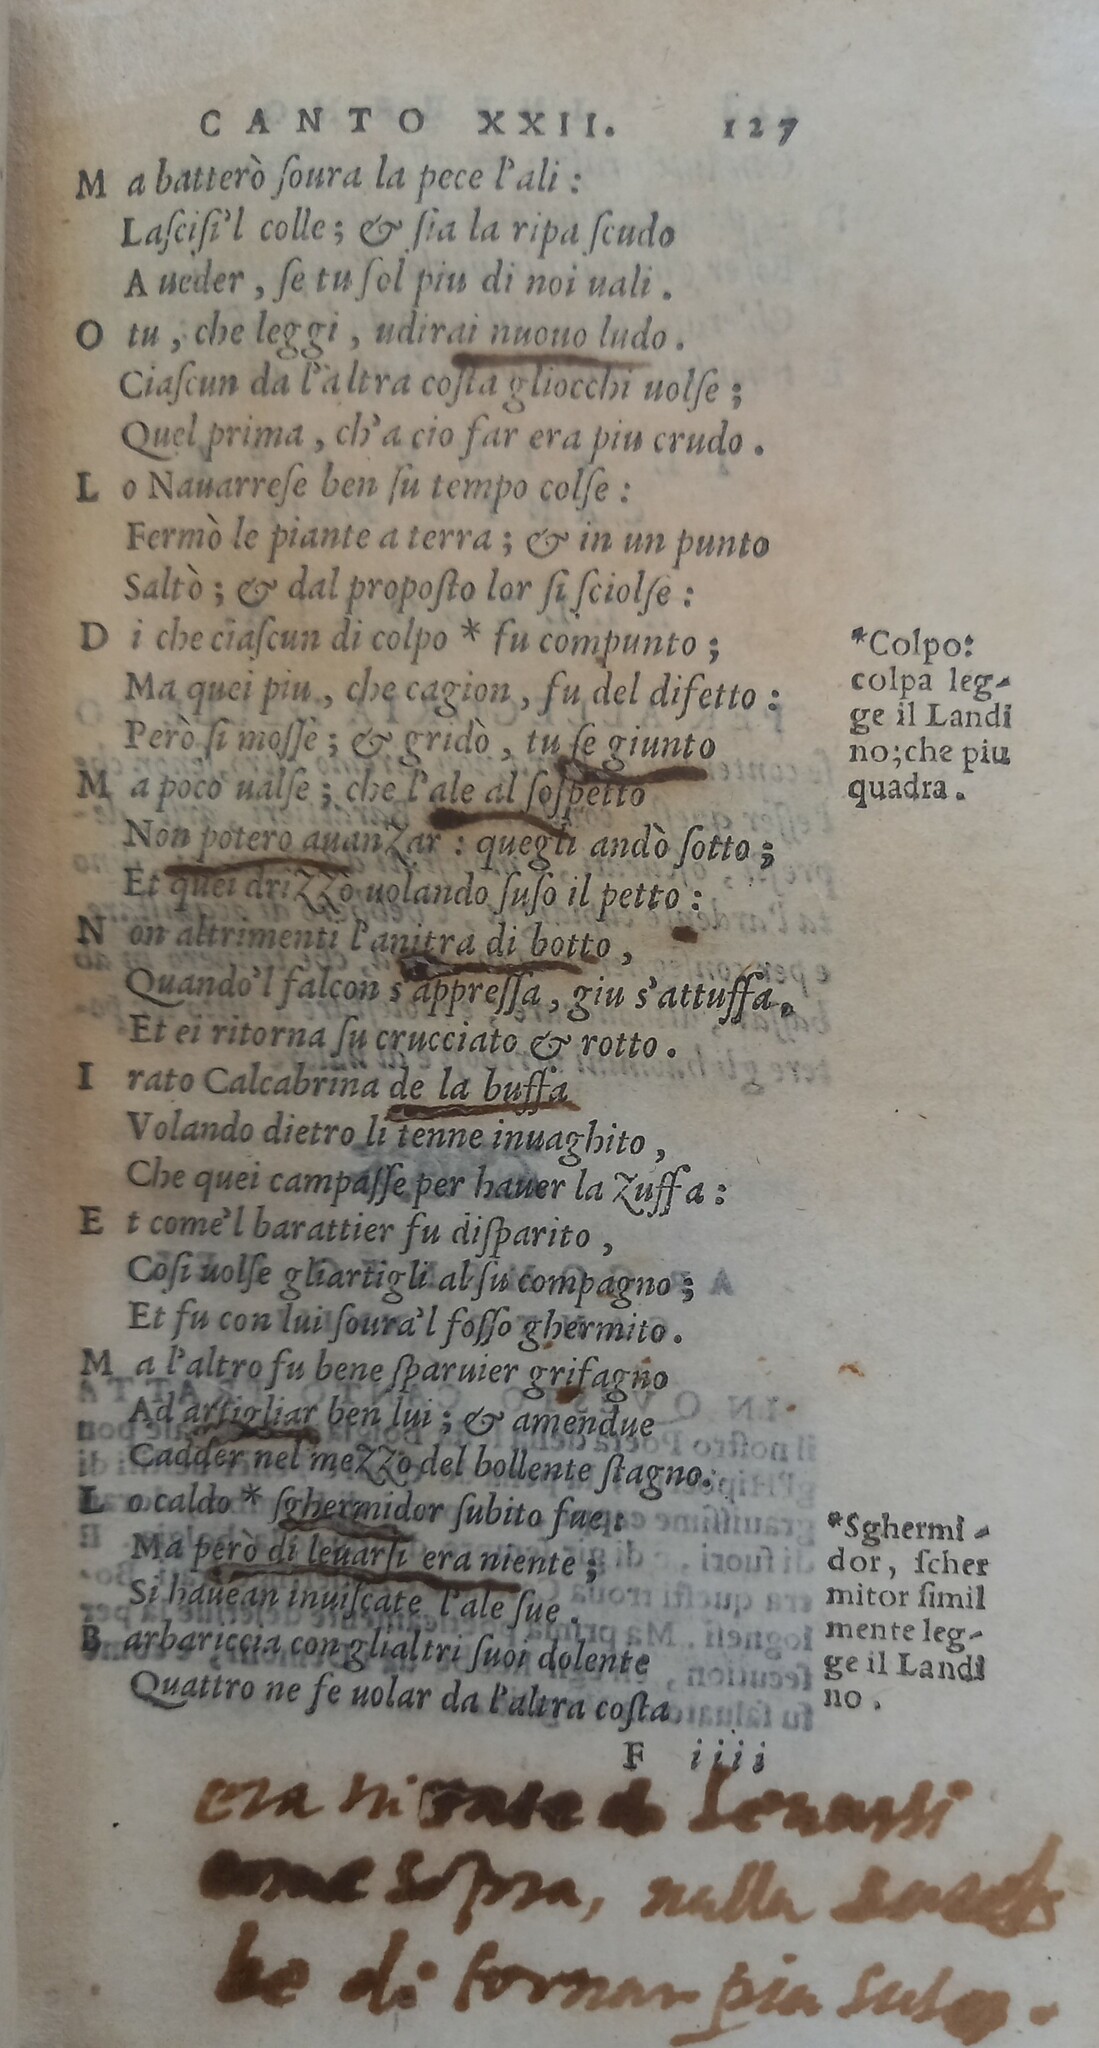 CANTO XXII. 127
M a batterò ſoura la pece l'ali :
Laſciſi'l colle ; & ſia la ripa ſcudo
A ueder , ſe tu ſol piu di noi uali .
O tu , che leggi , udirai nuouo ludo .
Ciaſcun da l'altra coſta gliocchi uolſe ;
Quel prima , ch'a cio far era piu crudo .
L o Nauarreſe ben ſu tempo colſe :
Fermò le piante a terra ; & in un punto
Saltò ; & dal propoſto lor ſi ſciolſe :
D i che ciaſcun di colpo * fu compunto ;
Ma quei piu , che cagion , fu del difetto :
Però ſi moſſe ; & gridò , tu ſe giunto
M a poco ualſe ; che l'ale al ſoſpetto
Non potero auanzar : quegli andò ſotto ;
Et quei drizzò uolando ſuſo il petto :
N on altrimenti l'anitra di botto ,
Quando'l falcon s'appreſſa , giu s'attuffa ,
Et ei ritorna ſu crucciato & rotto .
I rato Calcabrina de la buffa
Volando dietro li tenne inuaghito ,
Che quei campaſſe per hauer la zuffa :
E t come'l barattier fu diſparito ,
Coſi uolſe gliartigli al ſu compagno ;
Et fu con lui ſoura'l foſſo ghermito .
M a l'altro fu bene ſparuier grifagno
Ad artigliar ben lui ; & amendue
Cadder nel mezzo del bollente ſtagno .
L o caldo * ſghermidor ſubito fue :
Ma però di leuarſi era niente ;
Si hauean inuiſcate l'ale ſue .
B arbariccia con glialtri ſuoi dolente
Quattro ne fe uolar da l'altra coſta
F iiii
*Colpo:
colpa leg-
ge il Landi
no;che piu
quadra .
*Sghermi-
dor, ſcher
mitor ſimil
mente leg-
ge il Landi
no .
era niente di Leuarsi
come sopra, nulla sareb
be di tornar più suso.